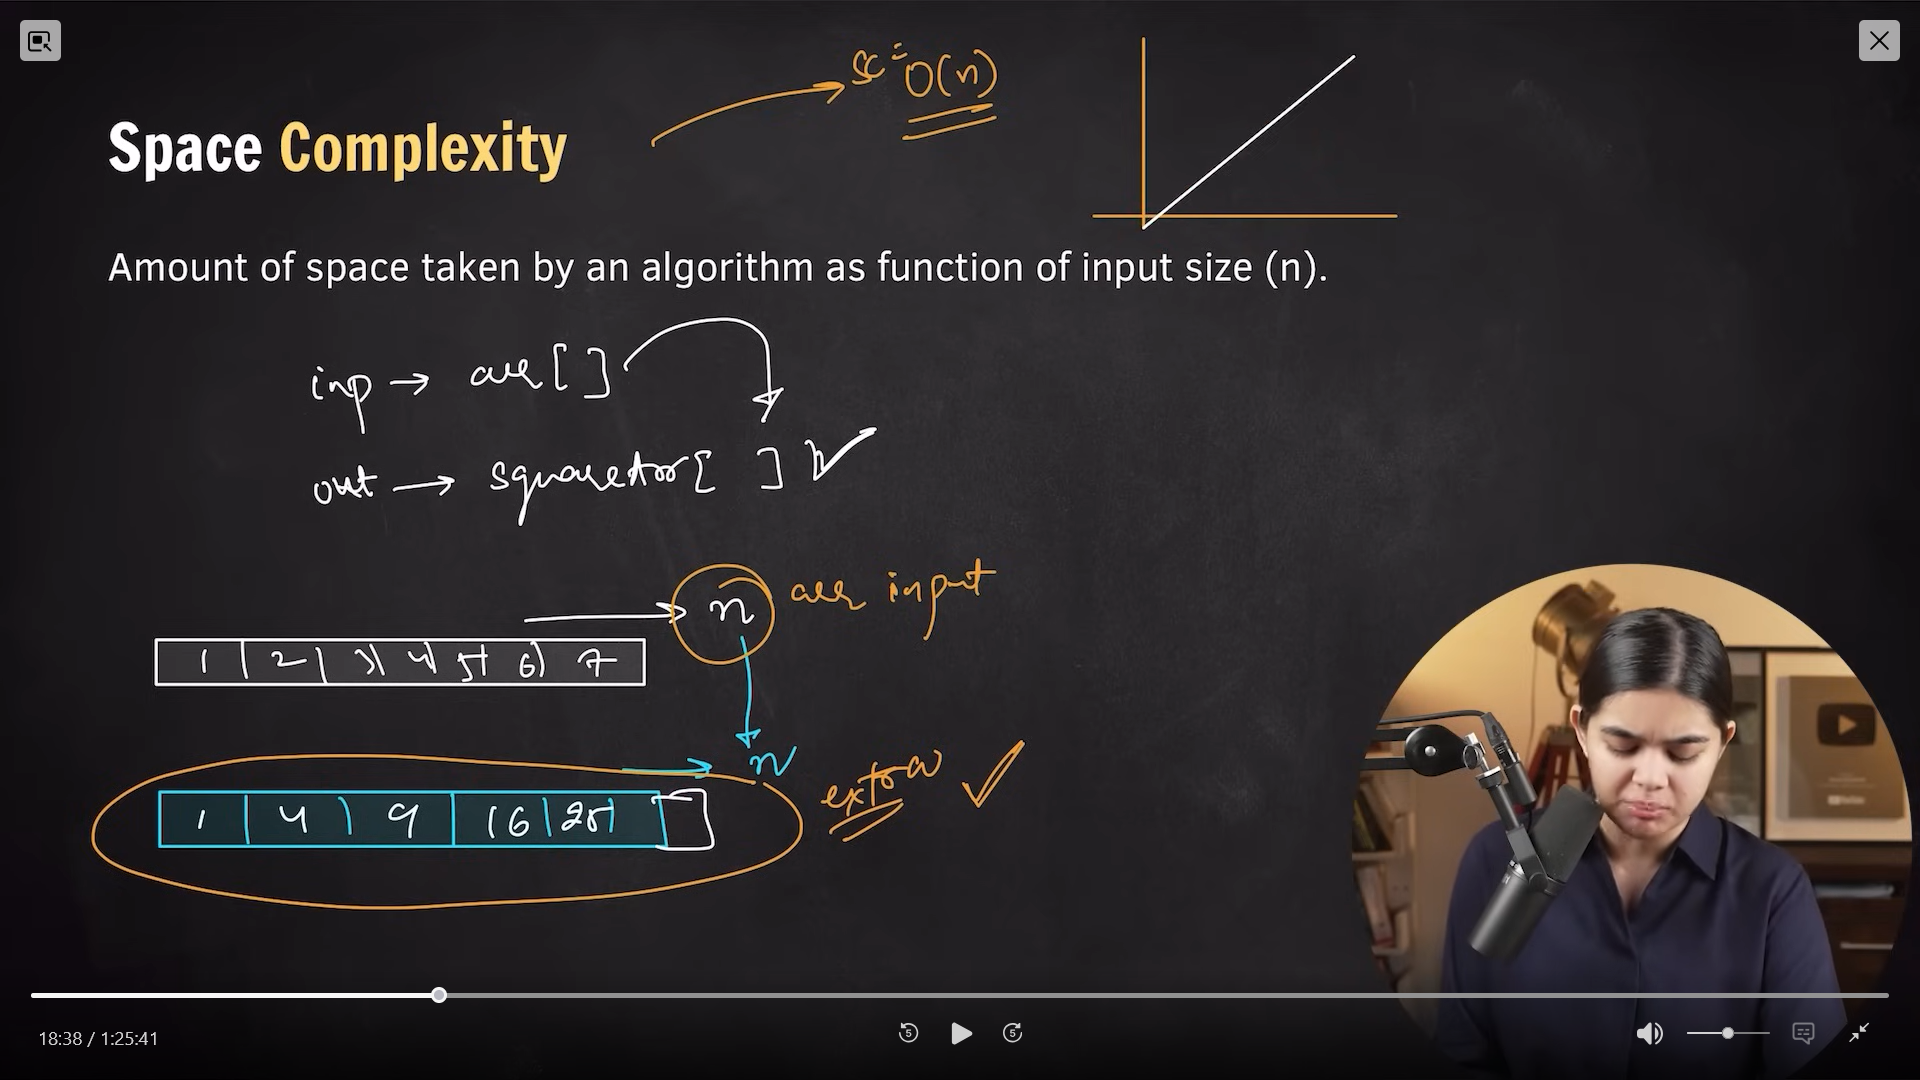 SC = O(n)
Space Complexity
Amount of space taken by an algorithm as function of input size (n).
inp → arr[ ]
out → squareArr[ ]
n arr input
1 2 3 4 5 6 7
n
extra ✓
1 4 9 16 25
18:38 / 1:25:41
5 5